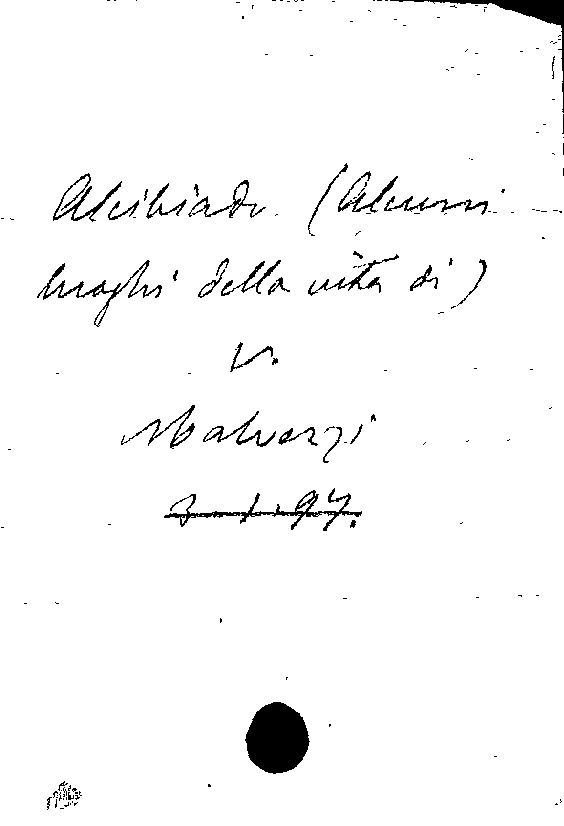 Alcibiade. (Alcuni
luoghi della vita di)
v.
Malvezzi
3. 1. 94.